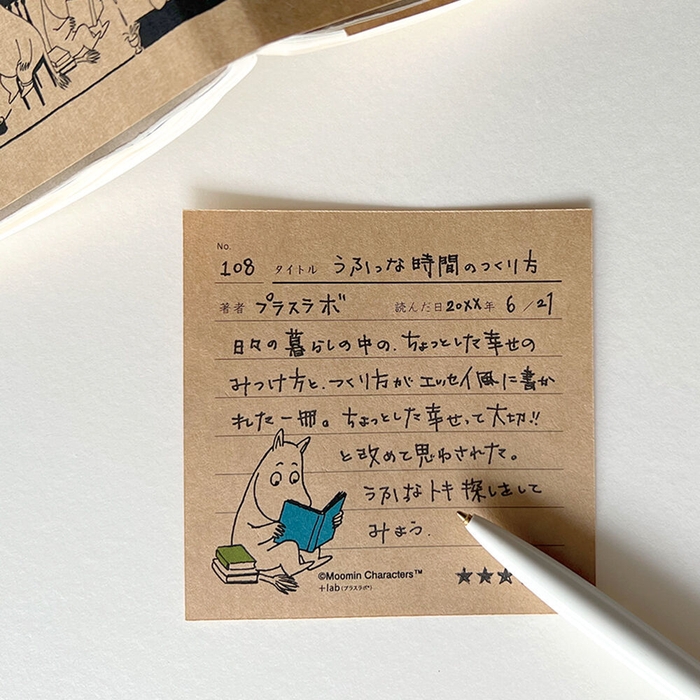 No.
108 タイトル うふっな時間のつくり方
著者 プラスラボ 読んだ日 20XX年 6/27
日々の暮らしの中の、ちょっとした幸せの
みつけ方と、つくり方がエッセイ風に書か
れた一冊。ちょっとした幸せって大切!!
と改めて思わされた。
うふっなトキ探しをして
みよう。
©Moomin Characters™
+lab (プラスラボ®)
★★★